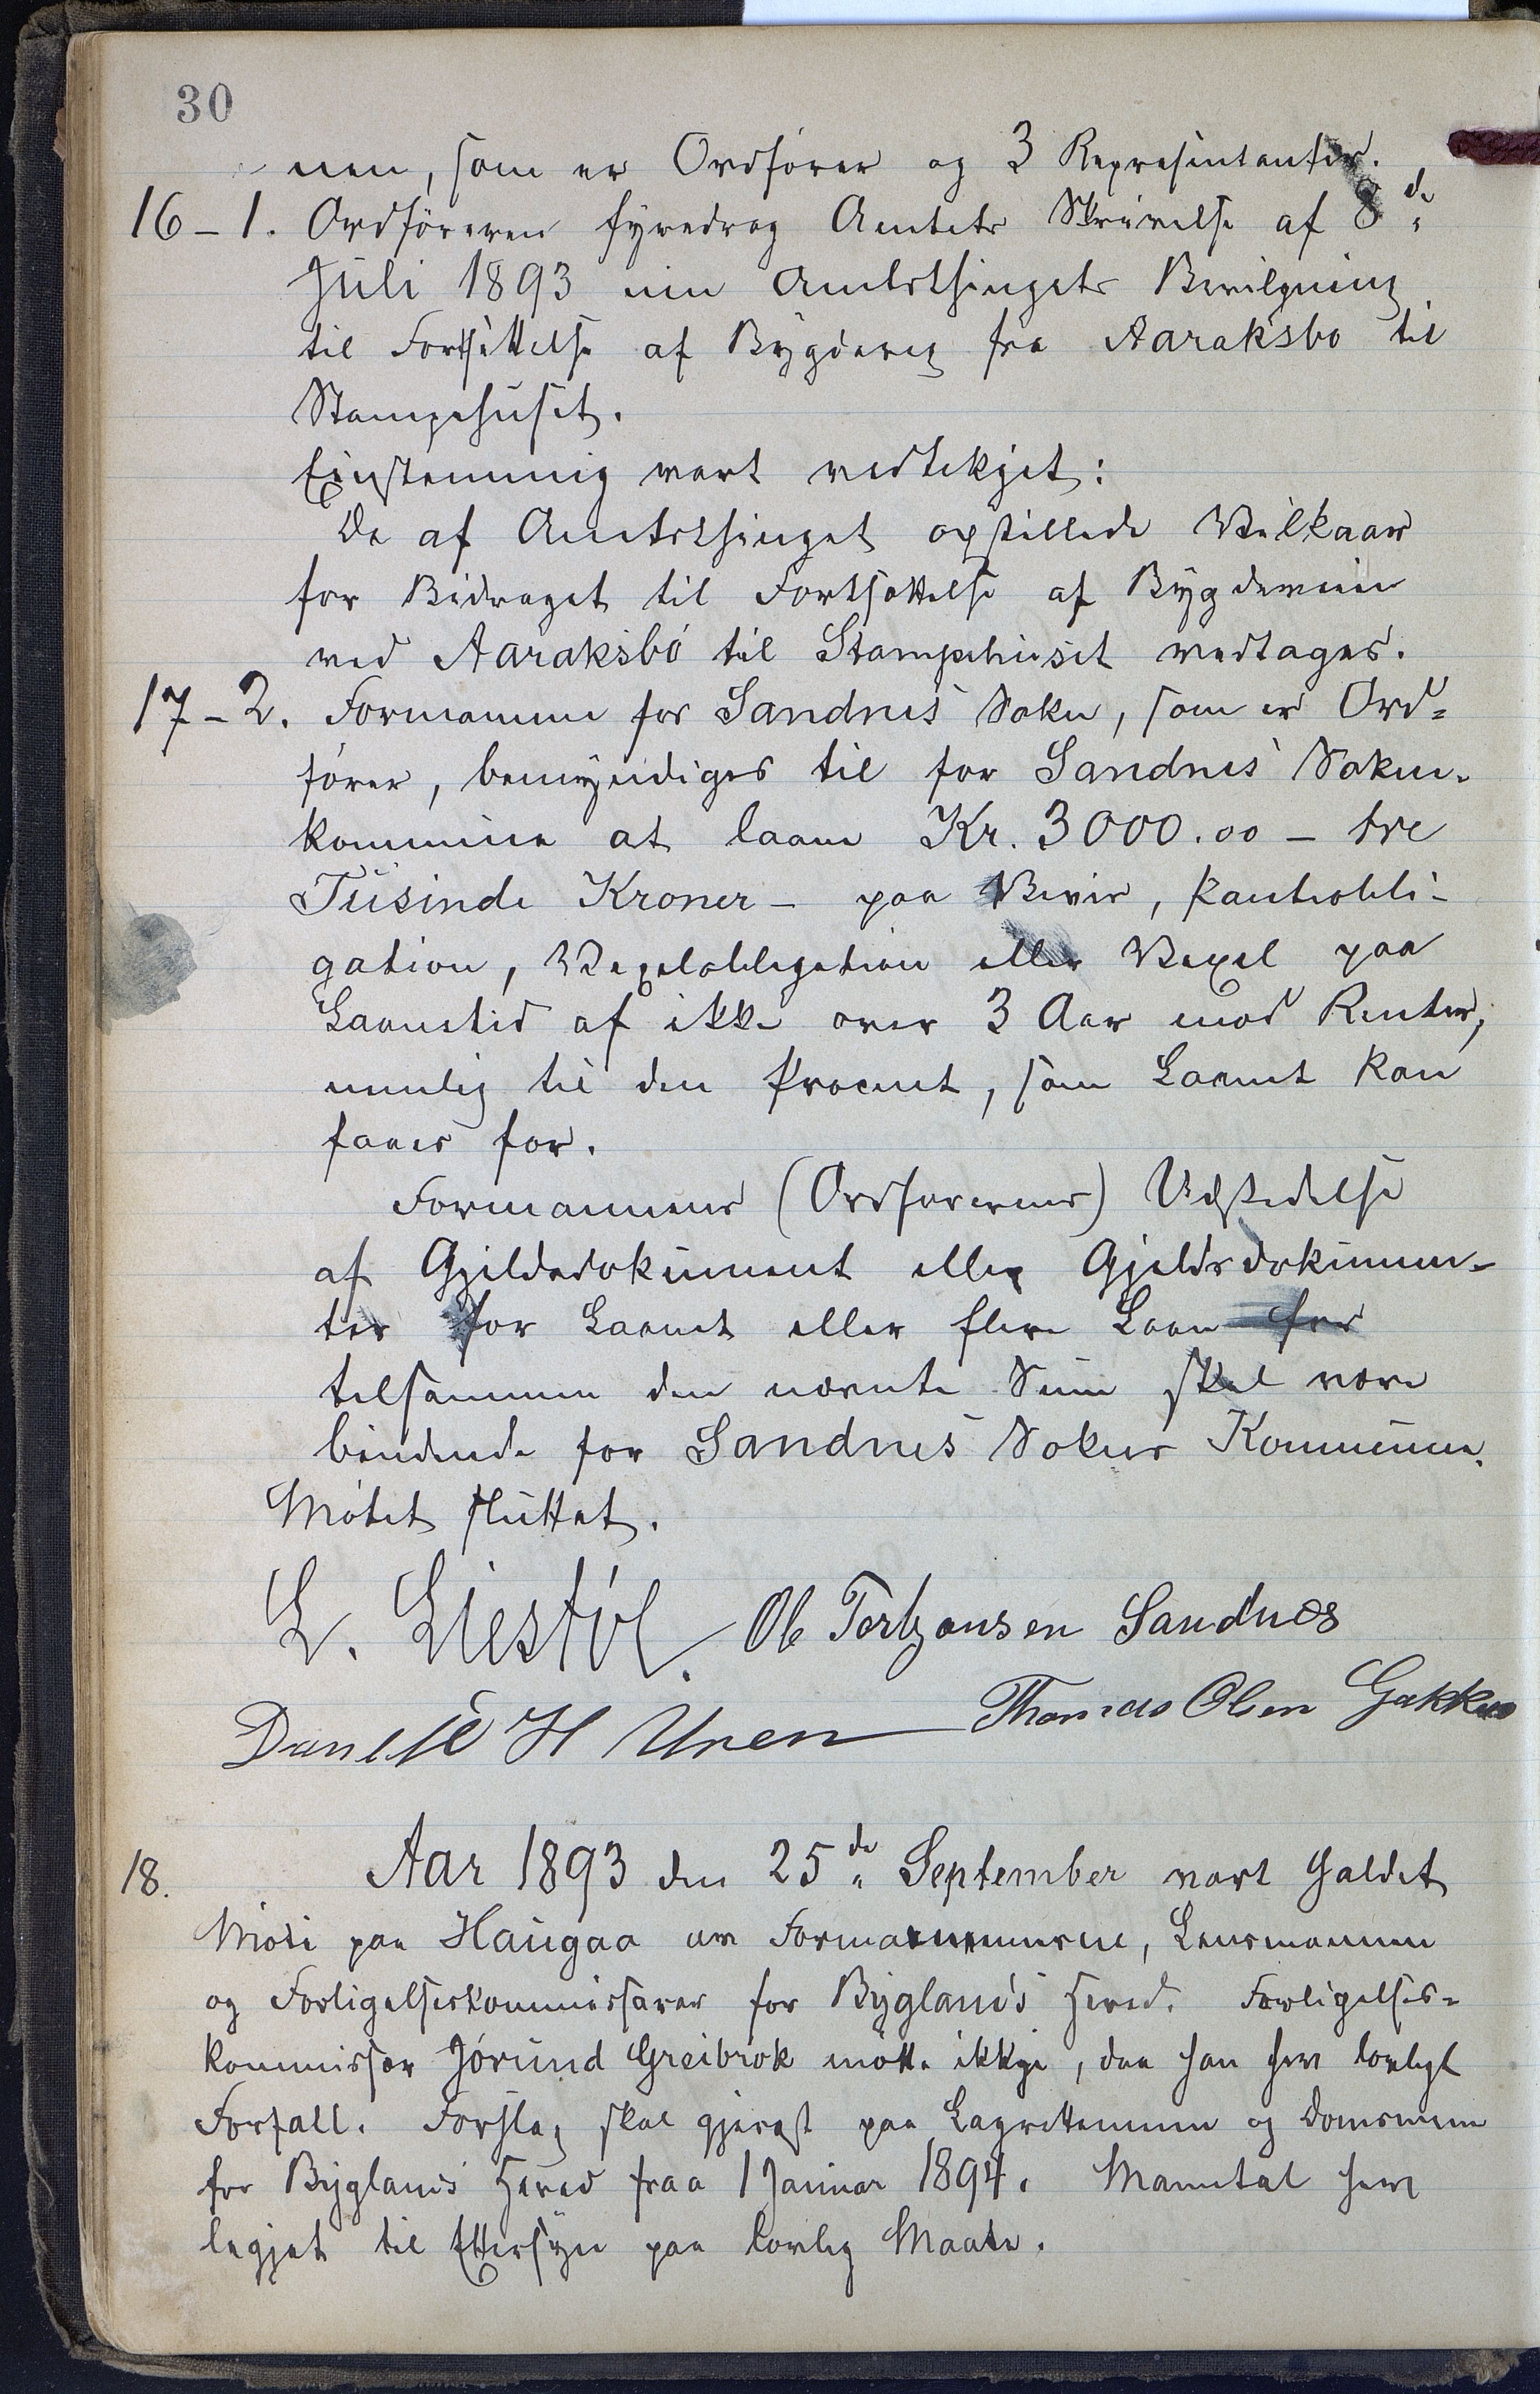 30
nen, som er Ordförer og 3 Repræsentanter.
16-1. Ordföraren fyredrog Amtets Skrivelse af 8de
Juli 1893 um Amtsthingets Bevilgning
til Fortsættelse af Bygdeveg fra Aaraksbø til
Stampehuset.
Einstemmig vart vedtekjet:
De af Amtsthinget opstillede Vilkaar
for Bidraget til Fortsættelse af Bygdeveien
ved Aaraksbö til Stampehuset vedtages.
17-2. Formannen for Sandnes Sokn, som er Ord-
förer, bemyndiges til for Sandnes Sokne-
kommune at laane Kr. 3000.00 - tre
Tusinde Kroner - paa Bevis, Pantobli-
gation, Vexelobligation eller Vexel paa
Laanetid af ikke over 3 Aar mod Renter,
nemlig til den Procent, som Laanet kan
faaes for.
Formannens (Ordförerens) Udstedelse
af Gjeldsdokument eller Gjeldsdokumen-
ter for Laanet eller flere Laan for
tilsammen den nævnte Sum skal være
bindende for Sandnes Sokns Kommune.
Mötet sluttet.
L. Liestöl. Ole Terkjensen Sandnes
Daniel H Uren Thomas Olsen Gakkes
18. Aar 1893 den 25de September vart haldet
Möte paa Haugaa av Formennerne, Lensmannen
og Forligelseskommissærer for Byglands Hered. Forligelses-
kommissær Jörund Greibrok mötte ikkje, daa han hev lovlegt
Forfall. Forslag skal gjerast paa Lagrettemenn og Domsmenn
for Byglands Hered fraa 1 Januar 1894. Manntal hev
legjet til Ettersyn paa lovleg Maate.